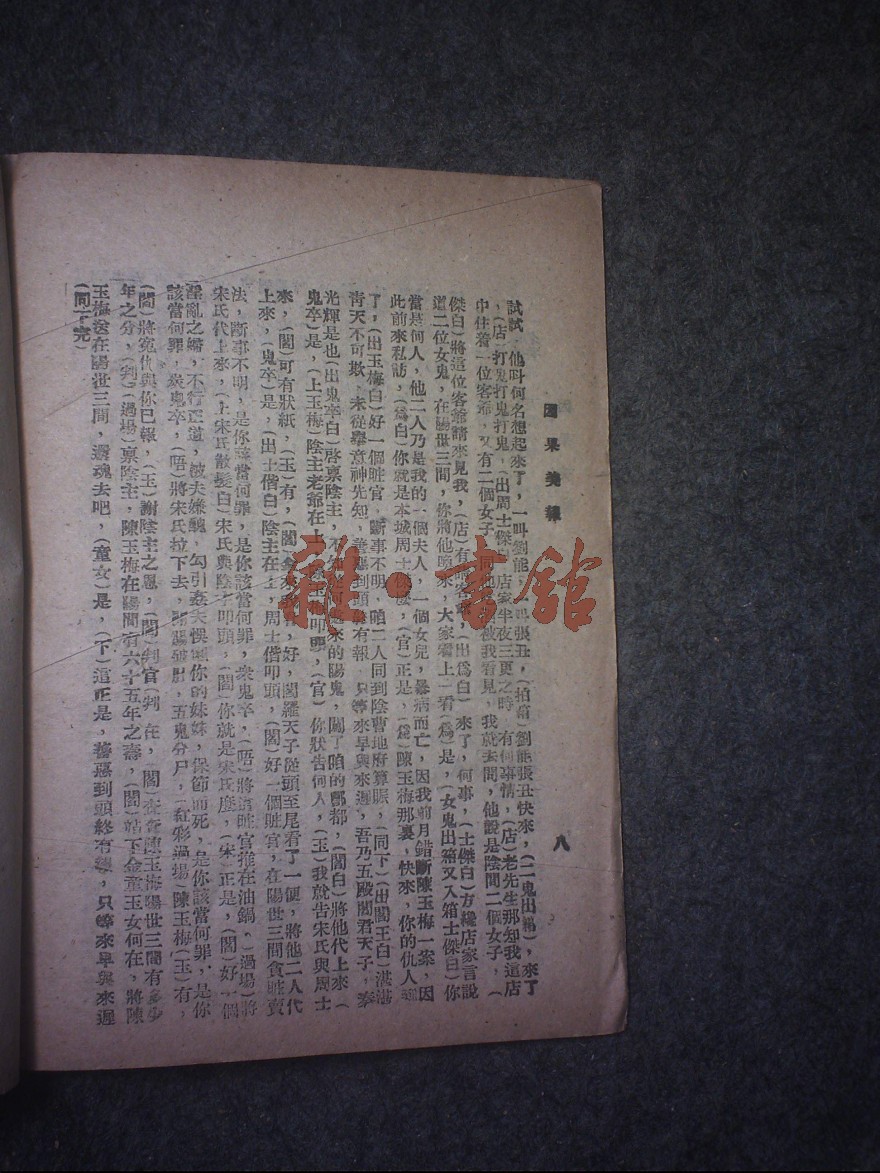 因果美報
八
試試，他叫何名想起來了，一叫劉能，一叫張丑，(拍箱)劉能張丑快來，(二鬼出場)，來了
，(店)打鬼打鬼打鬼，(出周士傑白)店家半夜三更之時，有何事情，(店)老先生那知我這店
中住着一位客爺，又有二個女子同他 被我看見，我就去問，他說是陰間二個女子，(
傑白)將這位客爺請來見我，(店)有 客爺(出為白)來了，何事，(士傑白)方纔店家言說
道二位女鬼，在陽世三間，你將他喚來，大家看上一看(為)是，(女鬼出箱又入箱士傑白)你
當是何人，他二人乃是我的一個夫人，一個女兒，暴病而亡，因我前月錯斷陳玉梅一案，因
此前來私訪，(為白)你就是本城周士傑麼，(官)正是，(為)陳玉梅那裏，快來，你的仇人
了，(出玉梅白)好一個賍官，斷事不明，咱二人同到陰曹地府算賬，(同下)(出閻王白)湛湛
青天不可欺，未從舉意神先知，善惡到頭終有報，只等來早與來遲，吾乃五殿閻君天子，奉
光輝是也(出鬼卒白)啓禀陰主，不知 來的陽鬼，鬧了咱的酆都，(閻白)將他代上來(
鬼卒)是，(上玉梅)陰主老爺在上，陳玉 叩頭，(官)你狀告何人，(玉)我就告宋氏與周士
來，(閻)可有狀紙，(玉)有，(閻)拿來我看，好，閻羅天子從頭至尾看了一便，將他二人代
上來，(鬼卒)是，(出士偕白)陰主在上，周士偕叩頭，(閻)好一個賍官，在陽世三間貪賍賣
法，斷事不明，是你該當何罪，是你該當何罪，衆鬼卒，(唔)將這賍官推在油鍋，(過場)將
宋氏代上來，(上宋氏散髮白)宋氏與陰主叩頭，(閻)你就是宋氏麼，(宋)正是，(閻)好一個
淫亂之婦，不行正道，被夫嫌醜，勾引姦夫悞 你的妹妹，保節而死，是你該當何罪，是你
該當何罪，衆鬼卒，(唔)將宋氏拉下去，開腸破肚，五鬼分尸，(紅彩過場)陳玉梅(玉)有，
(閻)將冤仇與你已報，(玉)謝陰主之恩，(閻)判官(判)在，(閻)查查陳玉梅陽世三間有多少
年之分，(判)(過場)禀陰主，陳玉梅在陽間有六十五年之壽，(閻)站下金童玉女何在，將陳
玉梅送在陽世三間，還魂去吧，(童女)是，(下)這正是，善惡到頭終有報，只等來早與來遲
(同下完)
雜·書館